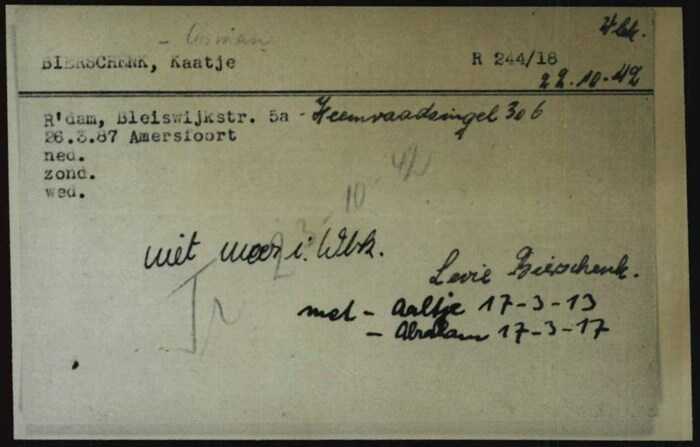 Wbk.
BIERSCHENK, Kaatje R 244/18
22.10.42
R'dam, Bleiswijkstr. 5a - Heemraadsingel 306
26.3.87 Amersfoort
ned.
zond.
wed.
23-10-42
niet meer i. Wbk.
Levie Bierschenk.
met - Aaltje 17-3-13
- Abraham 17-3-17